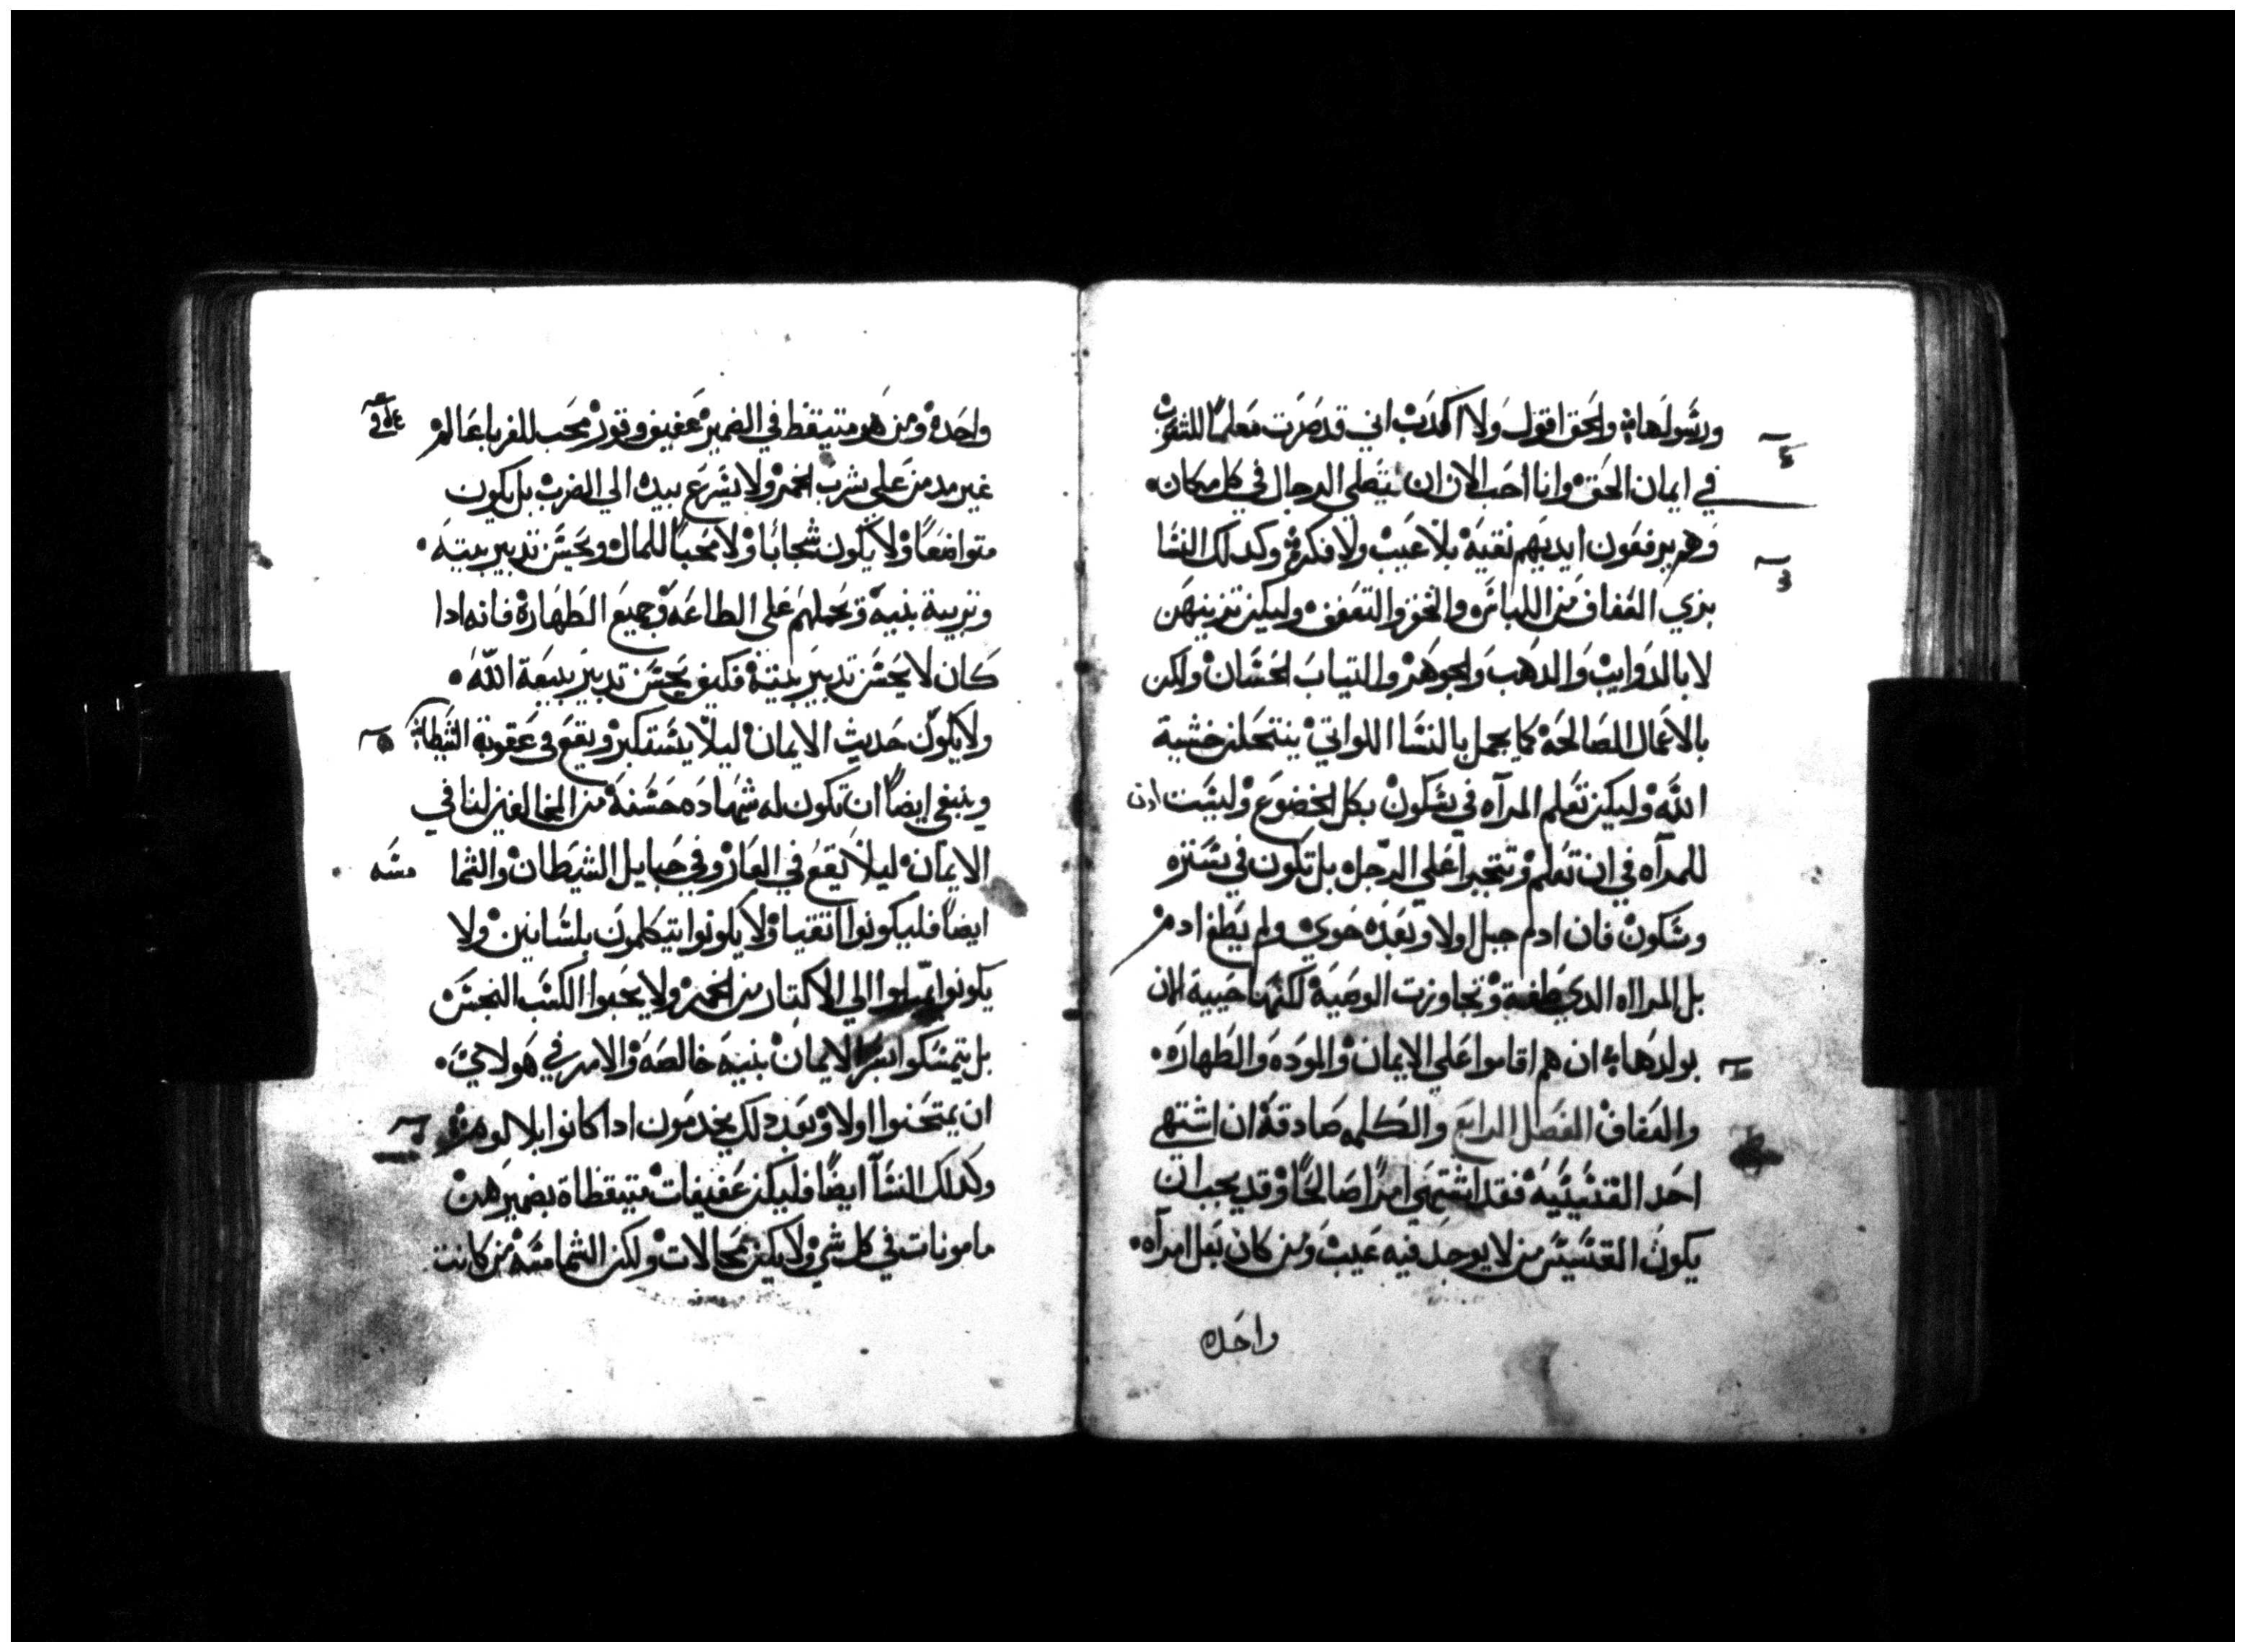 ورسولها والحق اقول ولا اكدب اني قد صرت معلما للشعوب
في ايمان الحق وانا احب الان ان يصلي الرجال في كل مكان
وهم يرفعون ايديهم نقيه بلا عيب ولا فكر وكدلك النسا
بزي العفاف من اللباس والخفر والتعفف وليكن تزينهن
لا بالدوايب والدهب والجوهر والتياب الحسان ولكن
بالاعمال الصالحه كما يجمل بالنسا اللواتي ينتحلن خشية
الله وليكن تعلم المرآه في سكون بكل الخضوع وليست ادن
للمرآه في ان تعلم وتتجبر اعلي الرجل بل تكون في ستره
وسكون فان ادم جبل اولا وبعده حوي ولم يطغ ادم
بل المراه الدي طغة وتجاوزت الوصية لكنها حيية الان
بولدها ان هم اقاموا علي الايمان والموده والطهاره
والعفاف الفصل الرابع والكلمه صادقة ان اشتهي
احد القسيسيه فقد اشتهي امرا صالحا وقد يجب ان
يكون القسيس من لا يوجد فيه عيب ومن كان بعل امرآه
واحده
واحدة ومن هو متيقظ في الضمير عفيف وقور محب للغربا عالم
غير مدمن علي شرب الخمر ولا يسرع بيده الي الضرب بل يكون
متواضعا ولا يكون شجابا ولا محبا للمال ويحسن تدبير بيته
وتربية بنيه ويحملهم علي الطاعه وجميع الطهارة فانه ادا
كان لا يحسن تدبير بيته فكيف يحسن تدبير بيعة الله
ولا يكون حديث الايمان ليلا يستكبر ويقع في عقوبة الشيطان
وينبغي ايضا ان تكون له شهاده حسنة من المخالفين لنا في
الايمان ليلا يقع في العار وفي حبايل الشيطان والشما
مسه
ايضا فليكونوا انقيا ولا يكونوا يتكلمون بلسانين ولا
يكونوا يميلوا الي الاكتار من الخمر ولا يحبوا الكسب النجس
بل يتمسكوا بسر الايمان بنيه خالصه والامر في هولاي
ان يمتحنوا اولا وبعد دلك يخدمون ادا كانوا بلا لوم
وكدلك النسآ ايضا فليكن عفيفات متيقظاة بضميرهن
مامونات في كل شي ولا يكن محالات ولكن الشمامسه من كانت